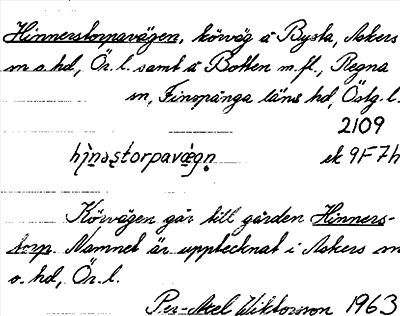 Hinnerstorpavägen, körväg å Bysta, Askers
sn o. hd, Ör. l. samt å Botten m.fl., Regna
sn, Finspånga läns hd, Östg. l.
2109
hi̠nəsto̠rpavä̠gn̥ ek 9F7h
Körvägen går till gården Hinners-
torp. Namnet är upptecknat i Askers sn
o. hd, Ör. l.
Per-Axel Wiktorsson 1963